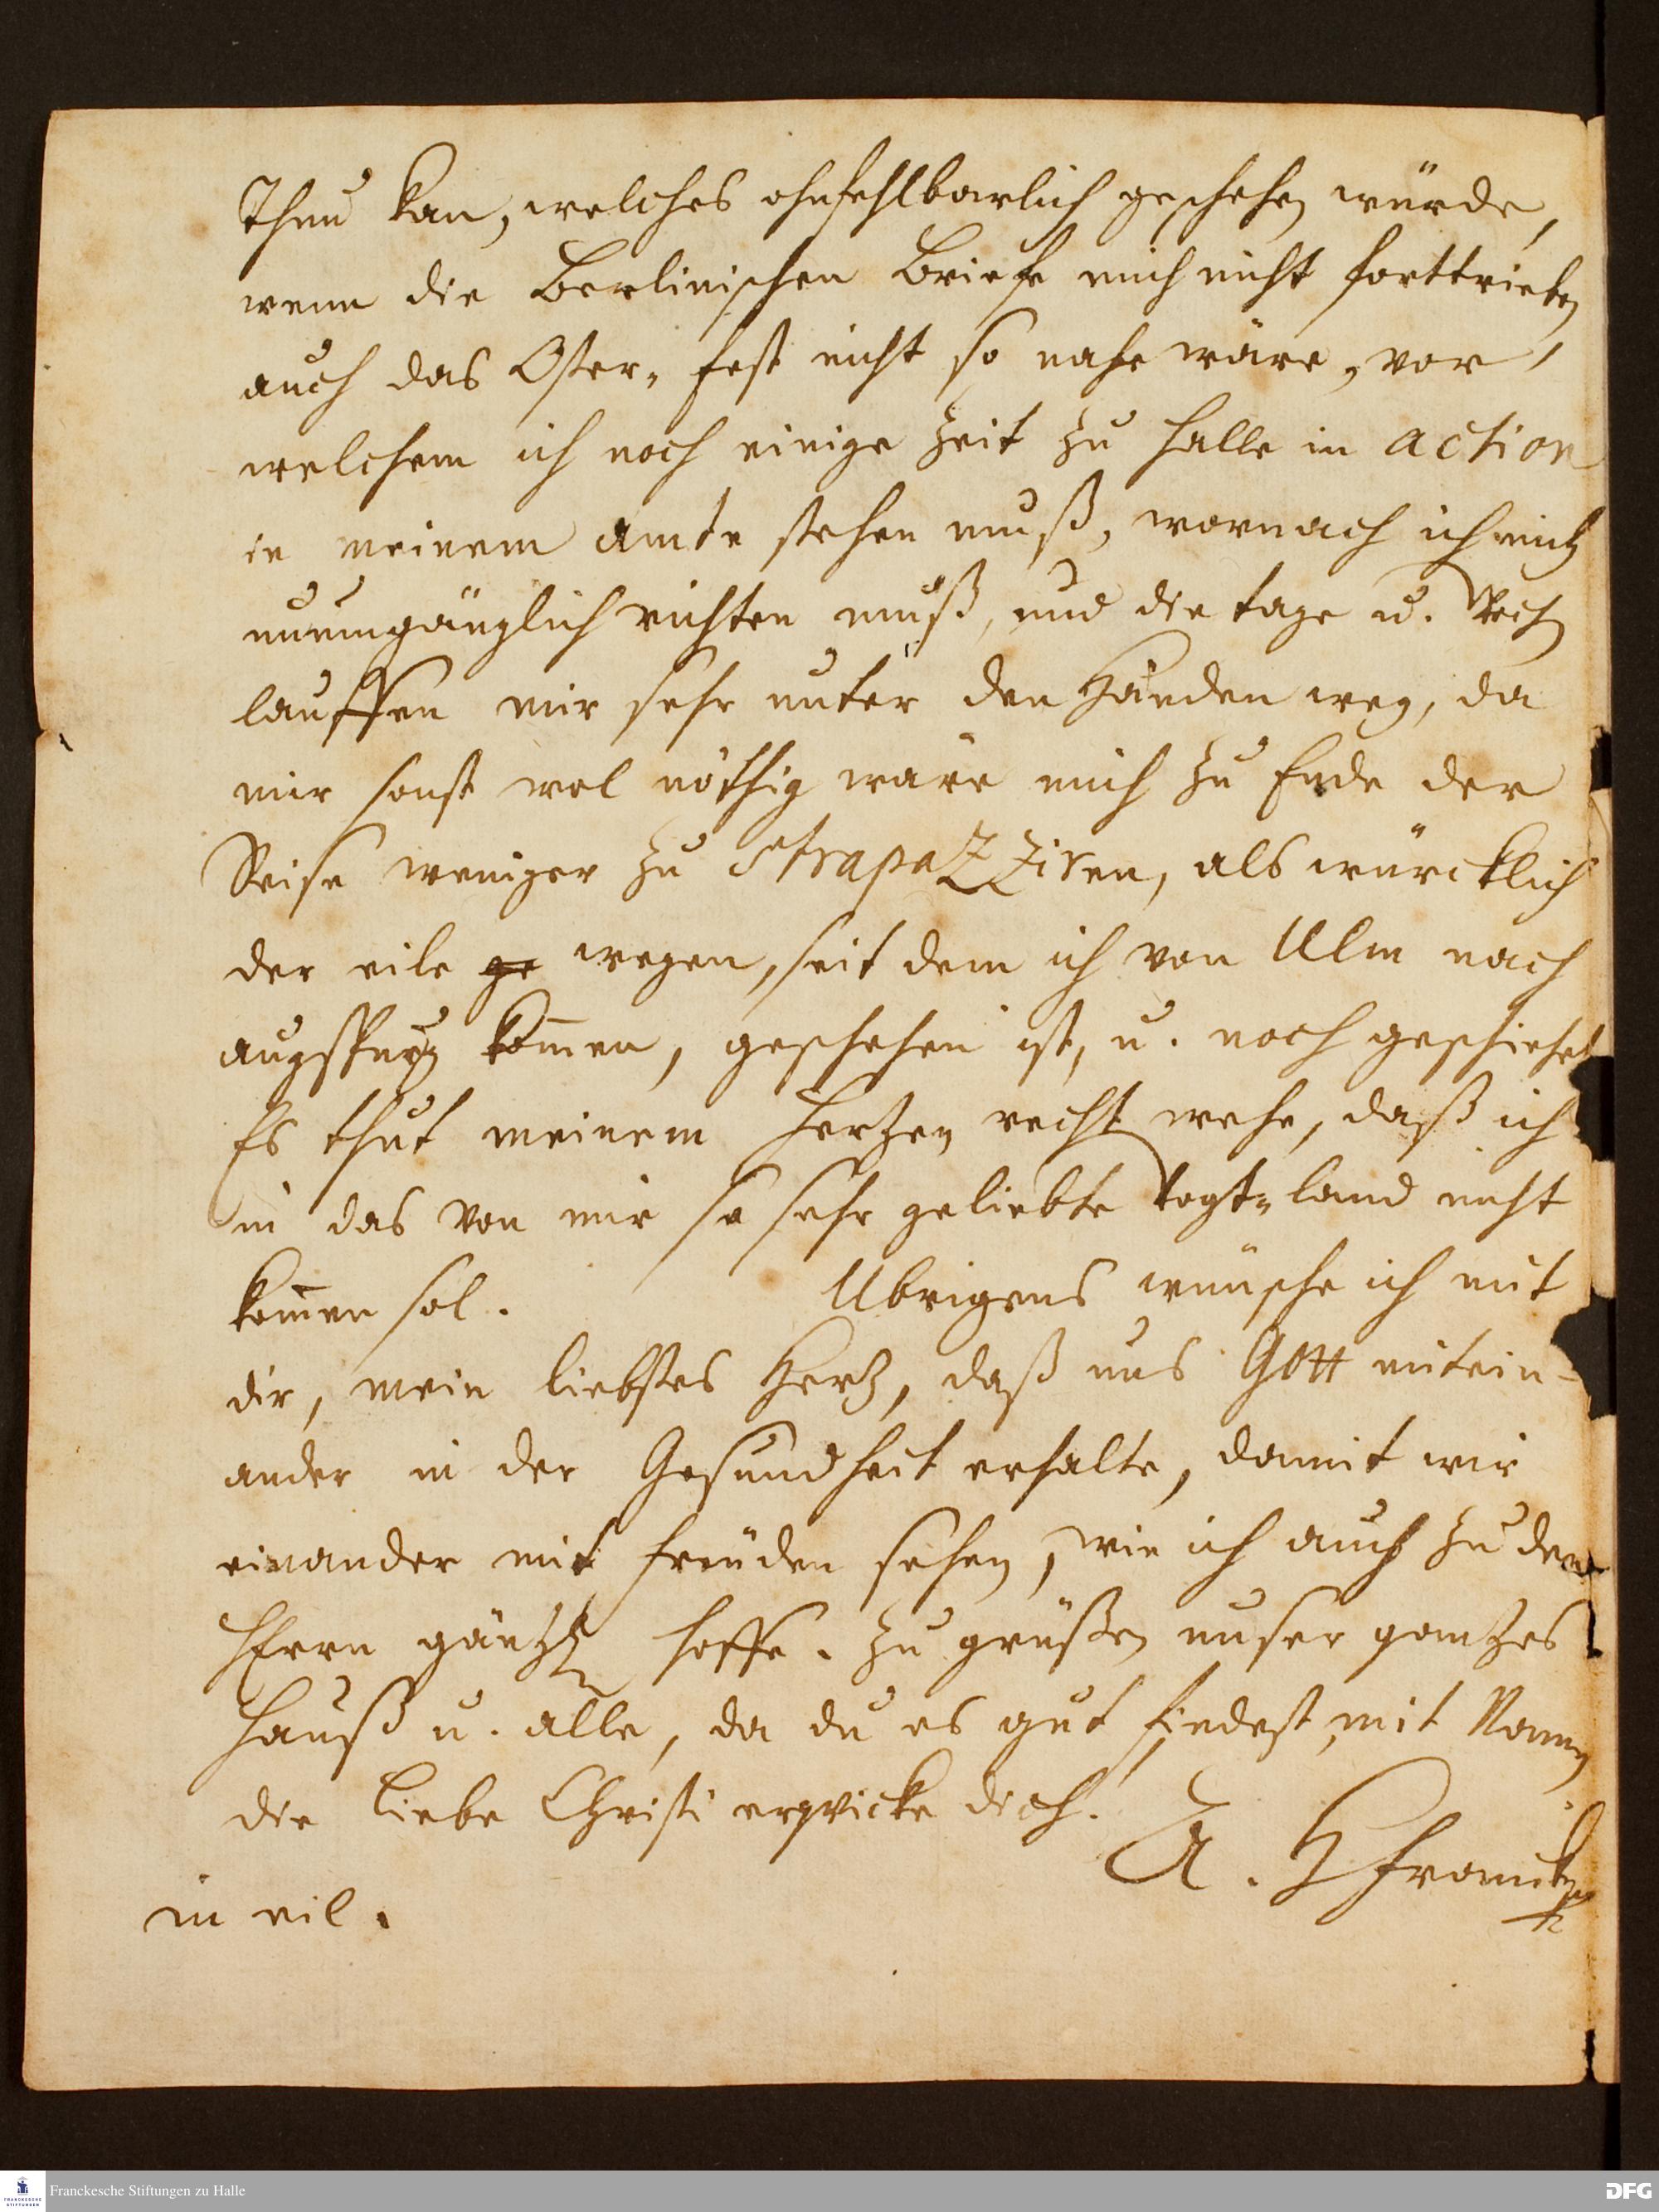 Thun kan, welches ohnfehlbarlich geschehen würde,
wenn die Berlinischen Briefe mich nicht forttrieben
auch das Oster-fest nicht so nahe wäre, vor
welchem ich noch einige Zeit zu Halle in action
in meinem Amte stehen muß, wornach ich mich
unumgänglich richten muß, und die tage u. Woch
lauffen mir sehr unter den Händen weg, da
mir sonst wol nöthig wäre mich zu Ende der
Reise weniger zu StrapaZZiren, als würcklich
der eile ge wegen, seit dem ich von Ulm nach
augspurg kom̄en, geschehen ist, u. noch geschiehet
Es thut meinem Hertzen recht wehe, daß ich
in das von mir so sehr geliebte Vogt-land nicht
kom̄en sol. Ubrigens wünsche ich mit
dir, mein liebstes Hertz, daß uns Gott mitein-
ander in der Gesundheit erhalte, damit wir
einander mit freuden sehen, wie ich auch zu dem
HErrn gäntzl hoffe. Zu grüßen unser gantzes
Hauß u. alle, da du es gut findest, mit Namen
die Liebe Christi erqvicke dich.
A. H Francke
in eil.
Franckesche Stiftungen zu Halle
FRANCKESCHE STIFTUNGEN
DFG